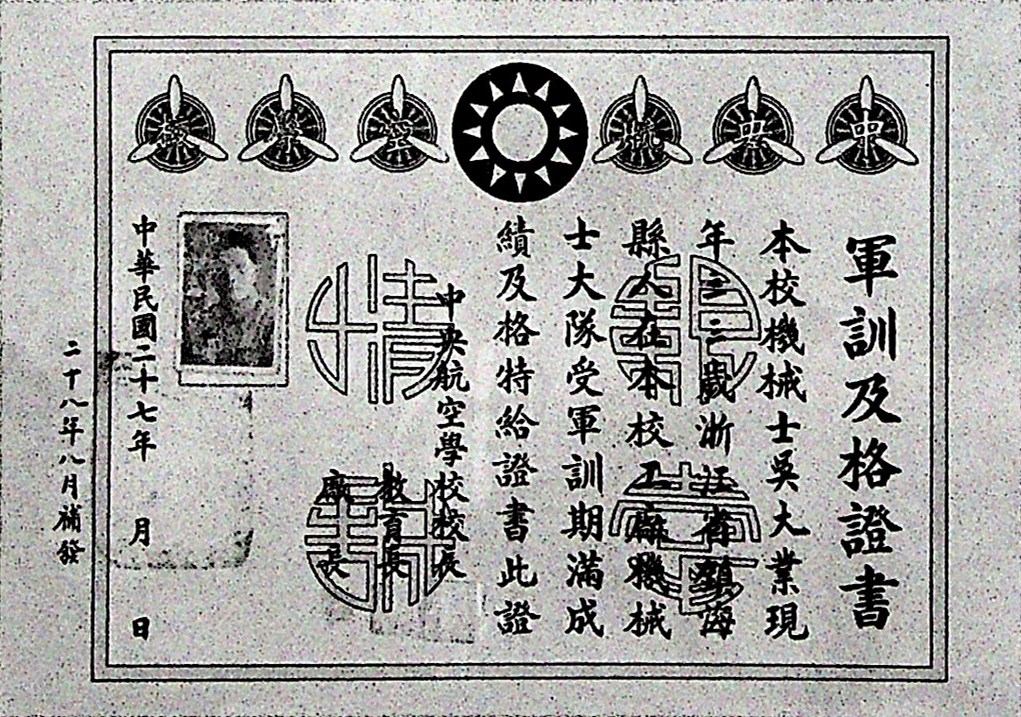 中央航空學校
軍訓及格證書
本校機械士吳大業現
年三歲浙江省鎮海
縣人在本校工廠機械
士大隊受軍訓期滿成
績及格特給證書此證
親愛精誠
中央航空學校校長
教育長
廠長
中華民國二十七年 月 日
二十八年八月補發